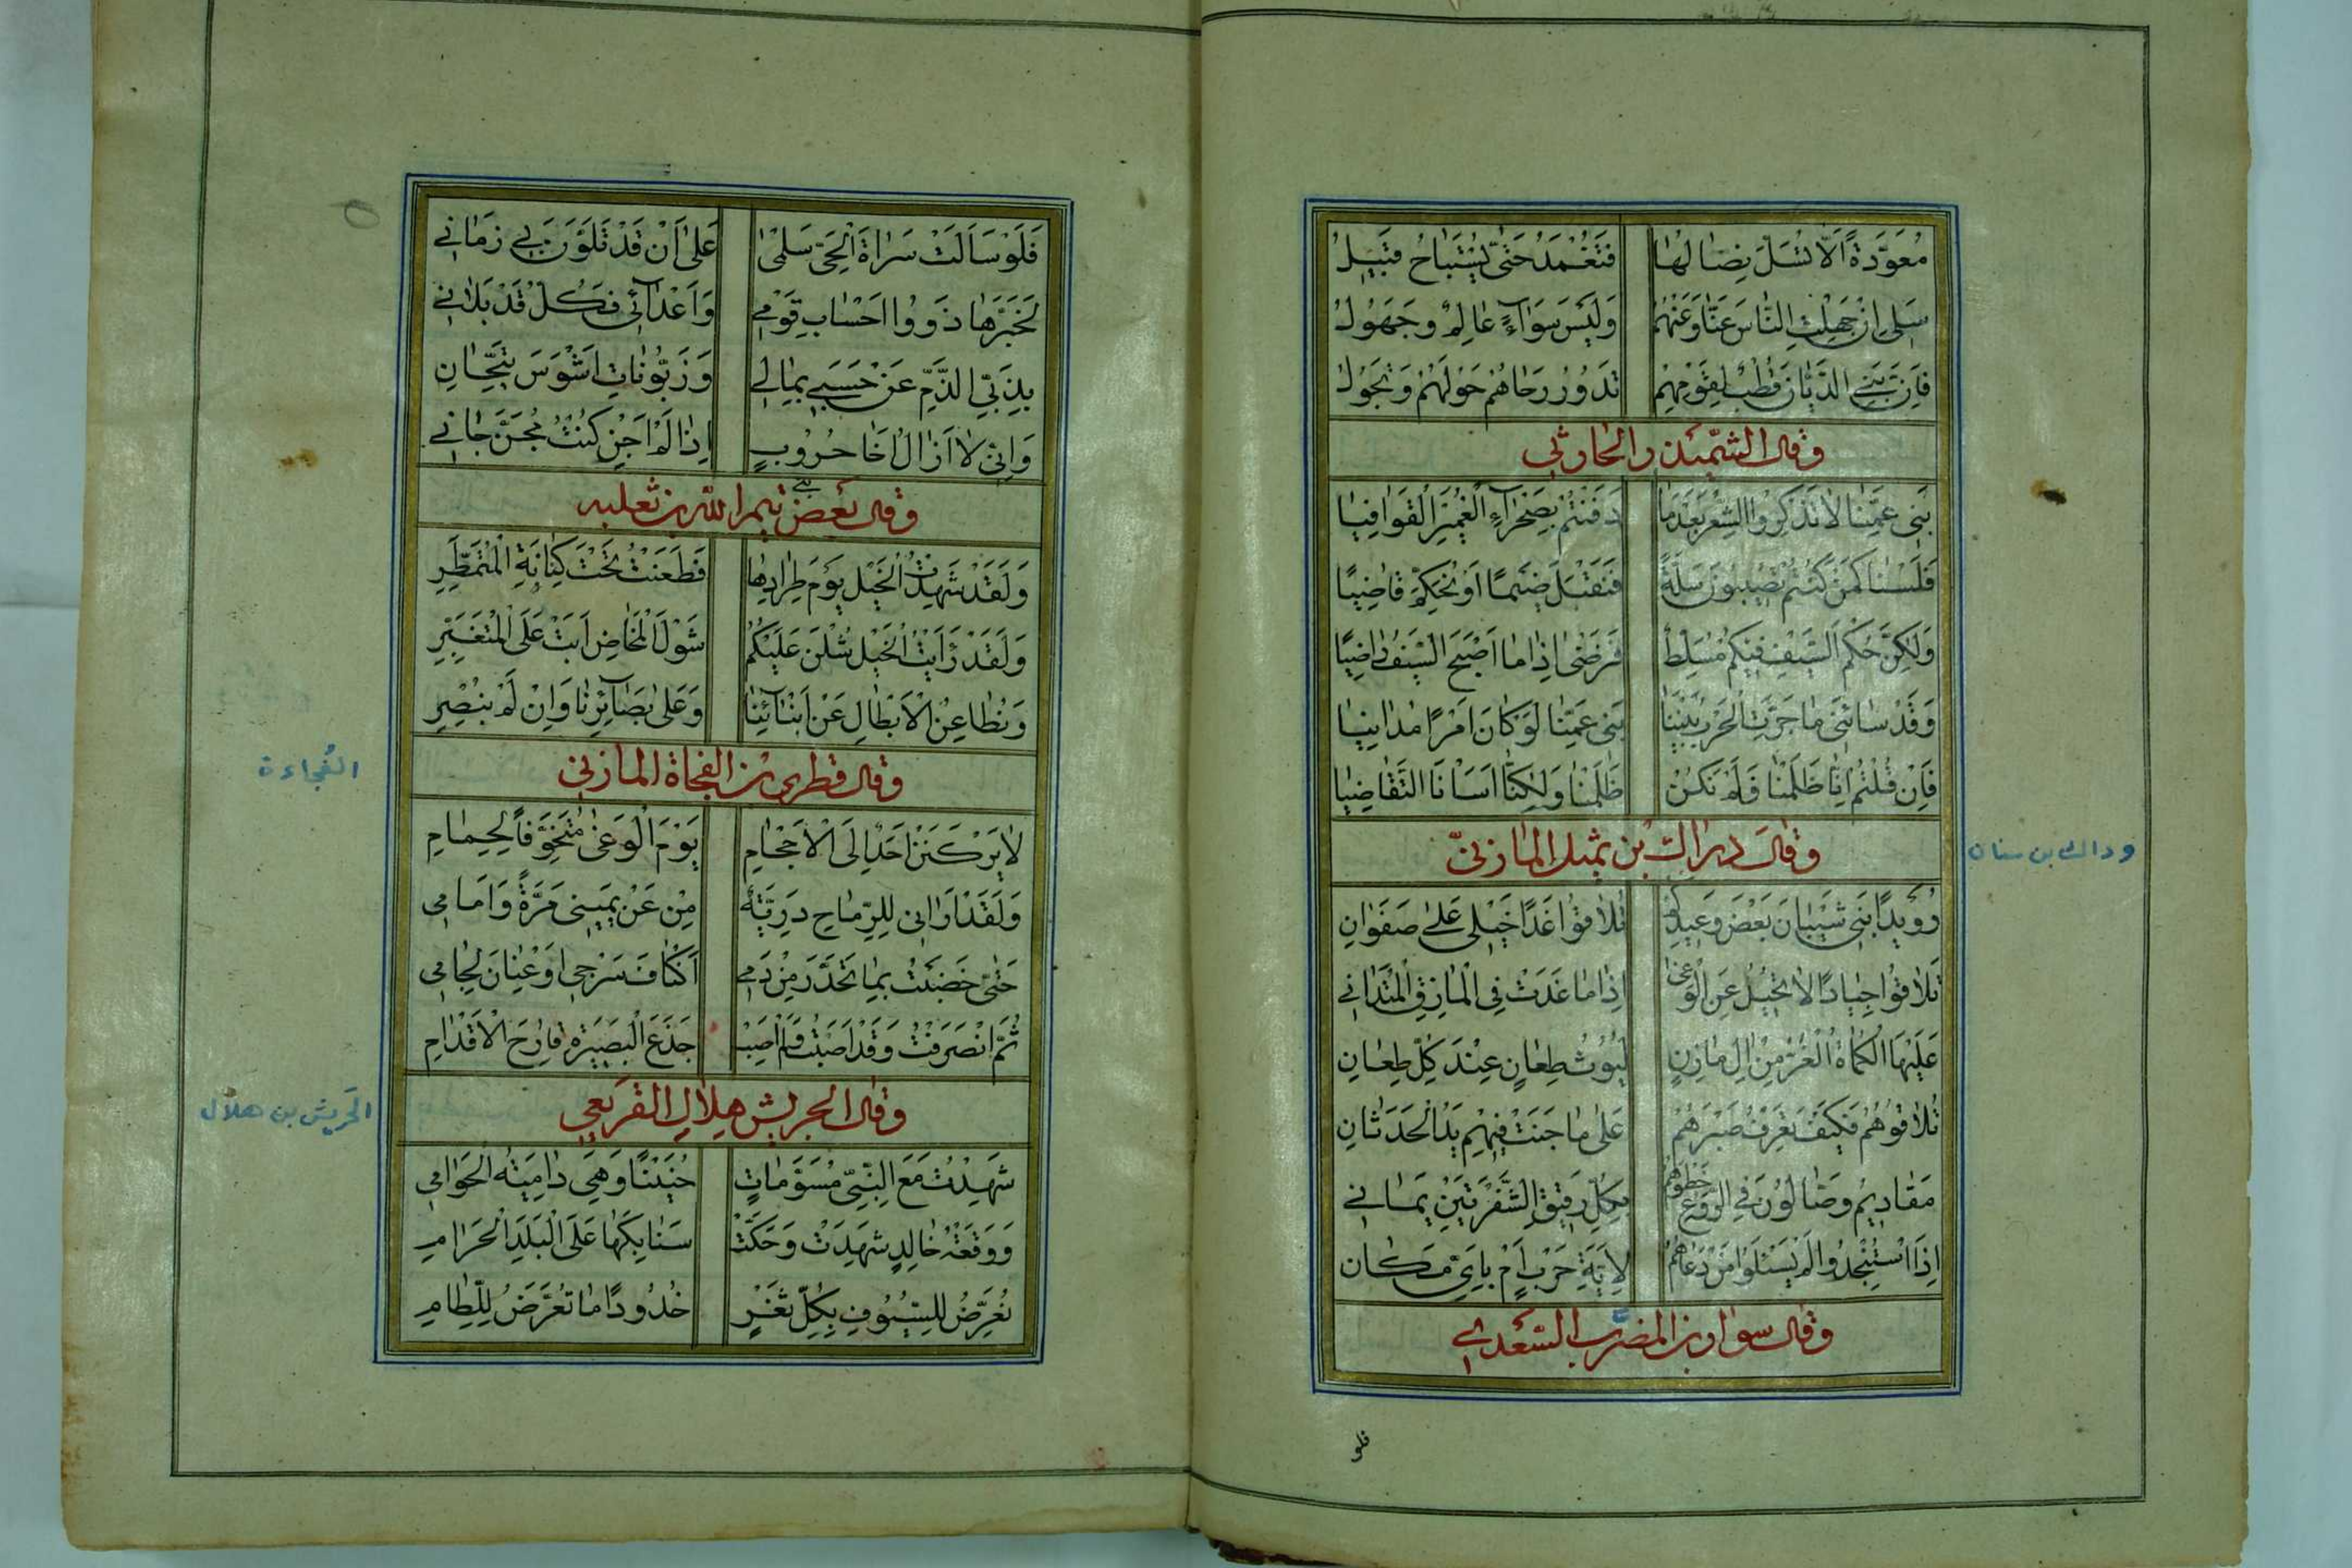 مُعَوَّدَةً اَلَّا تُسَلَّ نِصَالُهَا فَتُغْمَدَ حَتّٰى يُسْتَبَاحَ قَبَيلُ
سَلِى اِنْ جَهِلْتِ النَّاسَ عَنَّا وَعَنْهُمُ وَلَيْسَ سَوَآءً عَالِمٌ وَجَهُولُ
فَاِنَّ بَنِي الدَّيَّانِ قُطْبٌ لِقَوْمِهِمِ تَدَوُرُ رَحَاهُمْ حَوْلَهُمْ وَتَجُولُ
وقال الشَّمَيْذر الحارثي
بَنِى عَمِّنَا لَا تَذْكُرُوا الشِّعْرَ بَعْدَمَا دَفَنْتُمْ بِصَحْرَآءِ الْغُمَيْرِ الْقَوَافِيَا
فَلَسْنَا كَمَنْ كُنْتُمْ تُصِيبُونَ سَلَّةً فَنَقْبَلَ ضَيْمًا اَوْ نُحَكِّمَ قَاضِيًا
وَلٰكِنَّ حُكْمَ السَّيْفِ فِيكُمْ مُسَلَّطٌ فَنَرْضٰى اِذَا مَا اَصْبَحَ السَّيْفُ رَاضِيًا
وَقَدْ سَاءَنِى مَا جَرَّتِ الْحَرْبُ بَيْنَنَا بَنِى عَمِّنَا لَوْ كَانَ اَمْرًا مُدَانِيَا
فَاِنْ قُلْتُمُ اِنَّا ظَلَمْنَا فَلَمْ نَكُنْ ظَلَمْنَا وَلٰكِنَّا اَسَأْنَا التَّقَاضِيَا
وَقَالَ دراك بْن ثميل المَازنيّ
وداك بن سنان
رُوَيْدًا بَنِى شَيْبَانَ بَعْضَ وَعِيدِكُمْ تُلَاقُوا غَدًا خَيْلِى عَلٰى صَفَوَانِ
تُلَاقُوا جِيَادًا لَا تَحِيدُ عَنِ الْوَغٰى اِذَا مَا غَدَتْ فِى الْمَازِقِ الْمُتَدَانِي
عَلَيْهَا الْكُمَاةُ الْغُرُّ مِنْ اٰلِ مَازِنٍ لُيُوثُ طِعَانٍ عِنْدَ كُلِّ طِعَانِ
تُلَاقُوهُمُ فَكَيْفَ تَعْرِفُ صَبْرَهُمْ عَلٰى مَا جَنَتْ فِيهِمْ يَدُ الْحَدَثَانِ
مَقَادِيمُ وَصَّالُونَ فِي الرَّوْعِ خَطْوَهُمْ بِكُلِّ رَقِيقِ الشَّفْرَتَيْنِ يَمَانِي
اِذَا اسْتُنْجِدُوا لَمْ يَسْئَلُوا مَنْ دَعَاهُمُ لِاَيَّةِ حَرْبٍ اَمْ بِاَىِّ مَكَانِ
وقال سوار بن المضرَّب السَّعْدي
فلو
فَلَوْ سَاَلَتْ سَرَاةَ الْحَىِّ سَلْمٰى عَلٰى اَنْ قَدْ تَلَوَّنَ بِي زَمَانِي
لَخَبَّرَهَا ذَوُوا اَحْسَابِ قَوْمِي وَاَعْدَآئِى فَكُلٌّ قَدْ بَلَانِي
بِذَبِّى الذَّمَّ عَنْ حَسَبِي بِمَالِي وَزَبُّونَاتِ اَشْوَسَ تَيَّحَانِ
وَاِنِّى لَا اَزَالُ اَخَا حُرُوبٍ اِذَا لَمْ اَجْنِ كُنْتُ مُجَنَّ جَانِي
وقال بَعْض بني تيم الله بن ثعلبه
وَلَقَدْ شَهِدْتُ الْخَيْلَ يَوْمَ طِرَادِهَا فَطَعَنْتُ تَحْتَ كِنَانَةِ الْمُتَمَطِّرِ
وَلَقَدْ رَاَيْتُ الْخَيْلَ شُلْنَ عَلَيْكُمُ شَوْلَ الْمَخَاضِ اَبَتْ عَلَى الْمُتَغَبِّرِ
وَنُطَاعِنُ الْاَبْطَالَ عَنْ اَبْنَآئِنَا وَعَلٰى بَصَآئِرِنَا وَاِنْ لَمْ نُبْصِرِ
وقال قطري بن الفجاة المازني
الفُجاءة
لَا يَرْكَنَنْ اَحَدٌ اِلَى الْاِحْجَامِ يَوْمَ الْوَغٰى مُتَخَوِّفًا لِحِمَامِ
وَلَقَدْ اَرَانِى لِلرِّمَاحِ دَرِيَّةً مِنْ عَنْ يَمِينِى مَرَّةً وَاَمَامِى
حَتّٰى خَضَبْتُ بِمَا تَحَدَّرَ مِنْ دَمِي اَكْنَافَ سَرْجِى اَوْ عِنَانَ لِجَامِى
ثُمَّ انْصَرَفْتُ وَقَدْ اَصَبْتُ وَلَمْ اُصَبْ جَذَعَ الْبَصِيرَةِ قَارِحَ الْاَقْدَامِ
وقال الحريش هلال القريعي
الحَريش بن هلال
شَهِدْتُ مَعَ النَّبِىِّ مُسَوَّمَاتٍ حُنَيْنًا وَهِىَ دَامِيَةُ الْحَوَامِى
وَوَقْعَةَ خَالِدٍ شَهِدَتْ وَحَكَّتْ سَنَابِكَهَا عَلَى الْبَلَدِ الْحَرَامِ
نُعَرِّضُ لِلسُّيُوفِ بِكُلِّ ثَغْرٍ خُدُودًا مَا تُعَرَّضُ لِلِّطَامِ